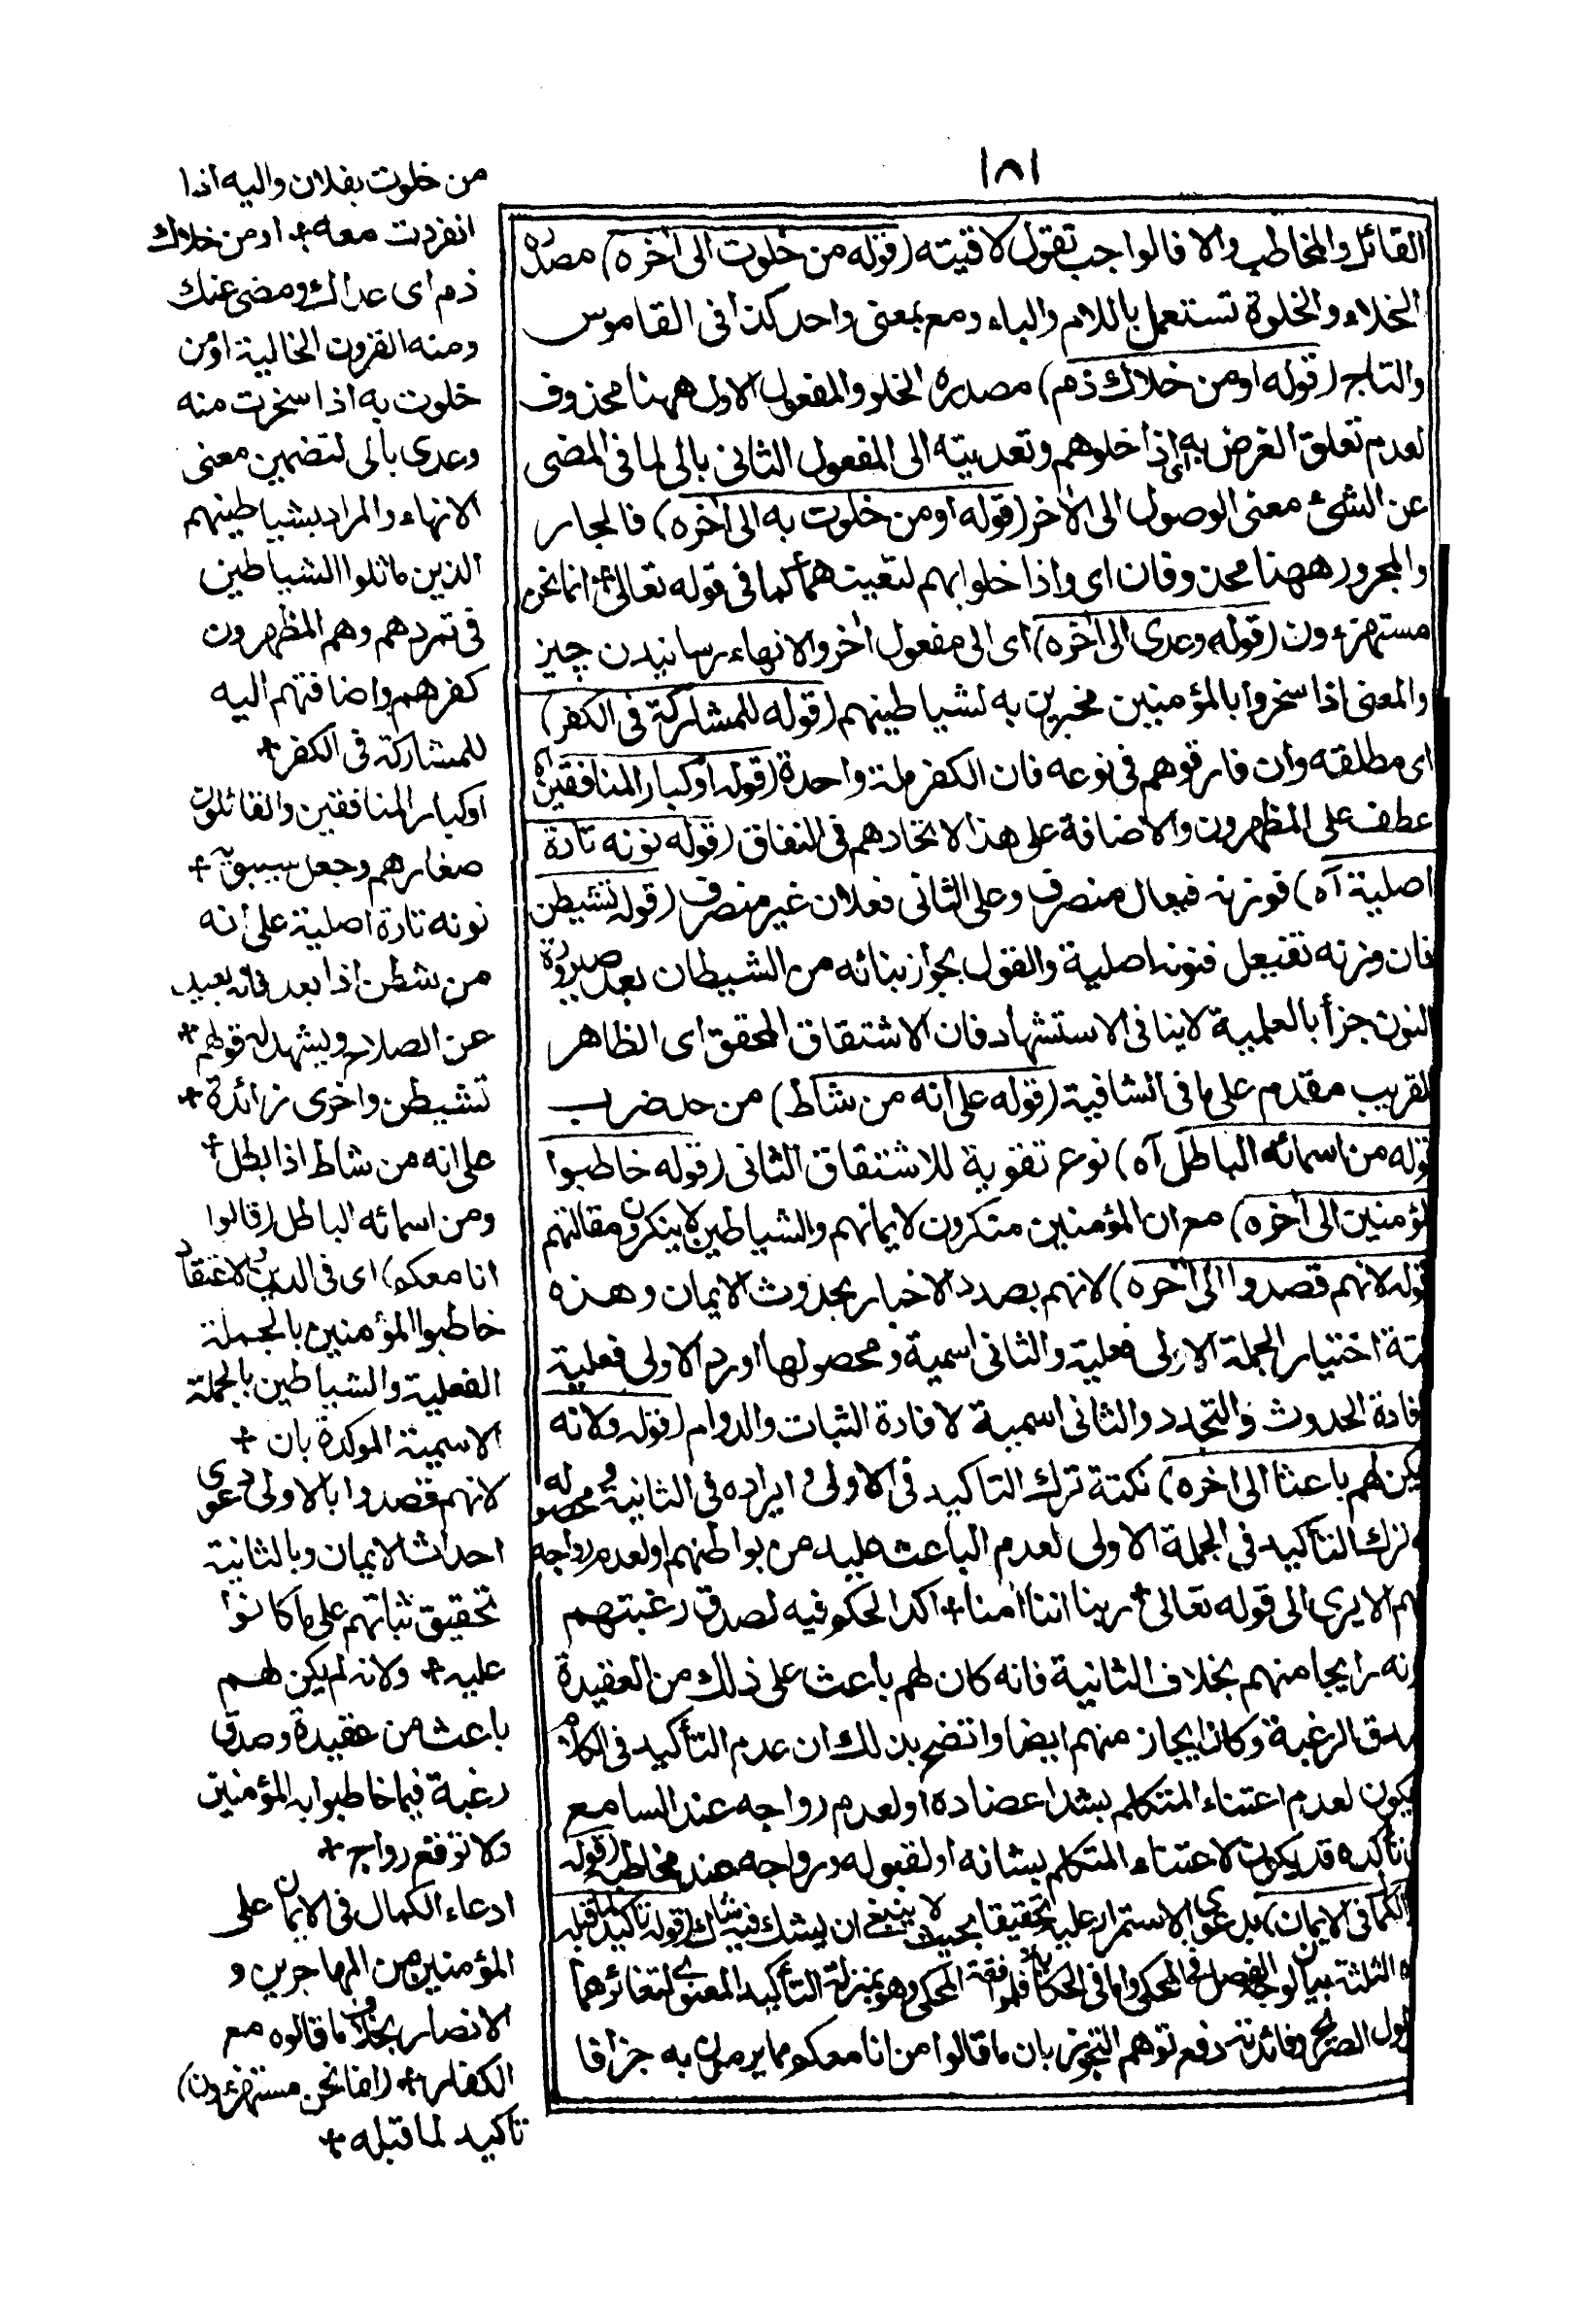 ١٨١
القائل والمخاطب والا فالواجب تقول لاقيته (قوله من خلوت الى اخره) مصدره
الخلاء والخلوة تستعمل باللام والباء ومع بمعنى واحد كذا فى القاموس
والتاج (قوله او من خلاك ذم) مصدره الخلو والمفعول الاول ههنا محذوف
لعدم تعلق الغرض به اى اذا خلوهم وتعديته الى المفعول الثانى بالى لما فى المضى
عن الشئ معنى الوصول الى الاخر (قوله او من خلوت به الى اخره) فالجار
والمجرور ههنا محذوفان اى واذا خلوا بهم كما فى قوله تعالى + انما نحن
مستهزءون (قوله وعدى الى اخره) اى الى مفعول اخر والانهاء رسانيدن چيز
والمعنى اذا سخروا بالمؤمنين مخبرين به لشياطينهم (قوله للمشاركة فى الكفر)
اى مطلقه وان فارقوهم فى نوعه فان الكفر ملة واحدة (قوله او كبار المنافقين اه
عطف على المظهرون والاضافة على هذا الاتحادهم فى النفاق (قوله نونه تارة
اصلية آه) فوزنه فيعال منصرف وعلى الثانى فعلان غير منصرف (قوله تشيطن
فان وزنه تفيعل فنونه اصلية والقول بجواز بنائه من الشيطان بعد صيرورة
النون جزأ بالعلمية لا ينافى الاستشهاد فان الاشتقاق المحقق اى الظاهر
القريب مقدم على ما فى الشافية (قوله على انه من شاط) من حد ضرب
قوله من اسمائه الباطل آه) نوع تقوية للاشتقاق الثانى (قوله خاطبوا
المؤمنين الى اخره) مع ان المؤمنين منكرون لايمانهم والشياطين لا ينكرون مقالتهم
قوله لانهم قصدوا الى اخره) لانهم بصدد الاخبار بحدوث الايمان وهذه
اختيار الجملة الاولى فعلية والثانى اسمية ومحصولها اورد الاولى فعلية
لافادة الحدوث والتجدد والثانى اسمية لافادة الثبات والدوام (قوله ولانه
يكن لهم باعثا الى اخره) نكتة ترك التاكيد فى الاولى وايراده فى الثانية ومحصوله
ترك التأكيد فى الجملة الاولى لعدم الباعث عليه من بواطنهم او لعدم رواجه
الا يرى الى قوله تعالى + ربنا اننا امنا + اكد الحكم فيه لصدق رغبتهم
رايجا منهم بخلاف الثانية فانه كان لهم باعث على ذلك من العقيدة
صدق الرغبة وكان رايجا منهم ايضا واتضح بذلك ان عدم التأكيد فى الكلام
يكون لعدم اعتناء المتكلم بشد اعضاده او لعدم رواجه عند السامع
تأكده قد يكون لاعتناء المتكلم بشانه او لقبوله ورواجه عند مخاطبه (قوله
الكمال فى الايمان) بدعوى الاستمرار عليه تحقيقا بحيث لا ينبغى ان يشك فيه شاك (قوله تاكيد لما قبله
الثلثة بيان لوجه الفصل فى المحكى واما فى الحكاية فلموافقة المحكى وهو بمنزلة التأكيد المعنوى لتغائرهما
وفائدته دفع توهم التجوز بان ما قالوا من انا معكم مما يرمون به جزافا
من خلوت بفلان واليه اذا
انفردت معه + او من خلاك
ذم اى عداك ومضى عنك
ومنه القرون الخالية او من
خلوت به اذا سخرت منه
وعدى بالى لتضمين معنى
الانهاء والمراد بشياطينهم
الذين ماثلوا الشياطين
فى تمردهم وهم المظهرون
كفرهم واضافتهم اليه
للمشاركة فى الكفر +
او كبار المنافقين والقائلون
صغارهم وجعل سيبويه +
نونه تارة اصلية على انه
من شطن اذا بعد فانه بعيد
عن الصلاح ويشهد له قولهم +
تشيطن واخرى زائدة +
على انه من شاط اذا بطل +
ومن اسمائه الباطل (قالوا
انا معكم) اى فى الدين والاعتقاد
خاطبوا المؤمنين بالجملة
الفعلية والشياطين بالجملة
الاسمية الموكدة بان +
لانهم قصدوا بالاولى دعوى
احداث الايمان وبالثانية
تحقيق ثباتهم على ما كانوا
عليه + ولانه لم يكن لهم
باعث من عقيدة وصدق
رغبة فيما خاطبوا به المؤمنين
ولا توقع رواج +
ادعاء الكمال فى الايمان على
المؤمنين من المهاجرين و
الانصار بخلاف ما قالوه مع
الكفار + (انما نحن مستهزءون)
تاكيد لما قبله +